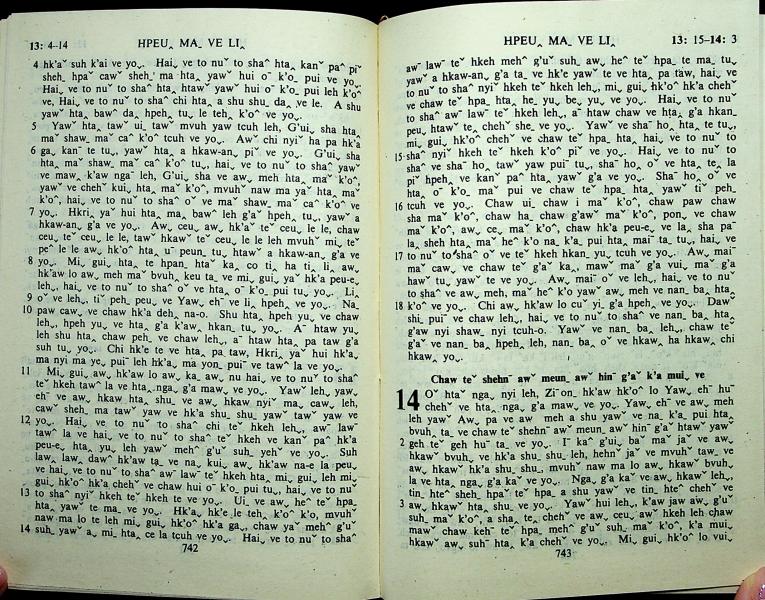 13: 4-14 HPEU‸ MA_ VE LI‸
4 hk'aˇ suh k'ai ve yoˬ. Hai, ve to nuˇ to shaˆ htaˬ kanˇ paˆ piˇ
sheh_ hpaˇ caw sheh_ ma htaˬ yawˇ hui oˇ k'o_ pui ve yoˬ.
Hai, ve to nuˇ to shaˆ htaˬ htawˇ yawˇ hui oˇ k'o_ pui leh k'oˆ
ve, Hai, ve to nuˇ to shaˆ chi hta a shu shuˬ daˬ ve le. A shu
yawˇ htaˬ bawˇ daˬ hpehˬ tuˬ le teh_ k'oˆ ve yoˬ.
5 Yawˇ htaˬ tawˇ ui, taw mvuh yaw tcuh leh, G'uiˬ sha htaˬ
ma˘ shaw_ maˇ ca˘ k'oˆ tcuh ve yoˬ. Awˇ chi nyiˇ ha pa hk'a
6 gaˬ kanˇ te tuˬ, yawˇ a hkaw-anˬ piˇ ve yoˬ. G'uiˬ sha
htaˬ, ma˘ shaw_ maˇ ca˘ k'oˆ tuˬ, hai, ve to nuˇ to shaˆ yawˇ
ve mawˬ k'aw ngaˇ leh, G'uiˬ sha ve awˬ meh htaˬ, ma˘ k'oˆ,
yawˇ ve chehˇ kui, htaˬ ma˘ k'oˆ, mvuhˇ naw ma yaˇ htaˬ ma˘
k'oˆ, hai, ve to nuˇ to shaˆ oˇ ve ma˘ shaw_ maˇ ca˘ k'oˆ ve
7 yoˬ. Hkri, yaˇ hui htaˬ ma_ bawˇ leh g'aˇ hpehˬ tuˬ, yawˇ a
hkaw-anˬ g'a ve yoˬ. Awˬ ceuˬ awˬ hk'aˇ teˇ ceuˬ le le, chaw
ceuˬ teˇ ceuˬ le le, tawˇ hkawˇ teˇ ceuˬ le le leh mvuhˇ mi, teˇ
peˆ le le awˬ hk'oˆ htaˬ uˉ peunˬ tuˬ, htawˇ a hkaw-anˬ, g'a ve
8 yoˬ. Mi, guiˬ htaˬ te hpanˬ htaˇ kaˬ co tiˬ ha tiˬ liˬ awˬ
hk'aw lo awˬ meh ma˘ bvuhˬ keu ta ve miˬ guiˬ yaˇ hk'a peu-eˬ
lehˬ, haiˬ ve to nuˇ to shaˆ oˇ ve htaˬ oˇ k'oˬ pui tuˬ yoˬ. Liˬ
9 oˇ ve lehˬ, tiˇ pehˬ peuˬ ve Yawˬ ehˇ ve liˬ hpehˬ ve yoˬ. Na_
10 paw cawˬ ve chaw hk'a dehˬ na-o. Shu htaˬ hpeh yuˬ ve chaw
lehˬ, hpeh yuˬ ve htaˬ g'a k'awˬ hkanˬ tuˬ yoˬ. Aˉ htaw yuˬ
leh shuˬ htaˬ chaw pehˬ ve chaw lehˬ, aˉ htaw htaˬ pa taw g'a
suh tuˬ yoˬ. Chi hk'e te ve htaˬ pa tawˬ, Hkriˬ yaˇ hui hk'aˬ
ma nyi ma yeˬ, puiˉ leh hk'aˬ ma yonˬ puiˉ veˇ tawˇ la ve yoˬ.
11 Miˬ guiˬ awˬ hk'aw lo awˬ kaˬ awˬ nu hai, ve to nuˇ to shaˆ
teˇ hkeh tawˇ la ve htaˬ ngaˬ g'a mawˬ ve yoˬ. Yawˇ lehˬ yawˬ
ehˇ ve awˬ hkaw htaˬ shu ve, awˬ hkaw nyiˇ maˬ cawˬ leh,
cawˇ shehˬ ma tawˇ yaw ve hk'a shu shuˬ yawˇ tawˇ yaw ve
12 yoˬ. Hai, ve to nuˇ to shaˆ chi teˇ hkeh lehˬ, awˬ lawˇ
tawˇ la ve hai, ve to nuˇ to shaˆ teˇ hkeh ve kanˇ pa˘ hk'a
peu-eˬ htaˬ, yuˬ leh yaw meh˘ g'uˇ suhˬ yehˇ ve yoˬ. Suh
lawˬ lawˬ dawˆ hk'aw taˬ ve naˬ kuiˬ awˬ hk'aw na-e la peuˬ
ve hai, ve to nuˇ to shaˆ awˉ lawˇ teˇ hkeh htaˬ mi, guiˬ leh miˬ
guiˬ hk'oˆ hk'a chehˇ ve chaw hui oˇ k'oˬ pui tuˬ, hai, ve to nuˇ
13 to shaˆ nyiˇ hkeh te hkeh te ve yoˬ. Uiˬ ve awˬ heˆ teˇ hpaˬ
htaˬ yawˇ te maˬ ve yoˬ. Hk'aˬ hk'e le teh_ k'oˆ k'oˬ, mvuhˇ
naw ma lo te leh miˬ guiˬ hk'oˆ hk'a gaˬ, chaw ya˘ meh˘ g'uˇ
14 suhˬ yawˇ aˬ miˬ htaˬ ce la tcuh ve yoˬ. Hai, ve to nuˇ to shaˆ
742
HPEU‸ MA_ VE LI‸ 13: 15-14: 3
awˉ lawˇ teˇ hkeh meh˘ g'uˇ suhˬ awˬ heˆ te hpaˬ te maˬ tuˬ,
yawˇ a hkaw-anˬ g'a taˬ ve hk'e yawˇ te ve htaˬ pa taw, haiˬ ve
to nuˇ to shaˆ nyiˇ hkeh teˇ hkeh lehˬ, miˬ guiˬ hk'oˆ hk'a chehˇ
ve chaw teˇ hpaˬ htaˬ heˬ yuˬ beˬ yuˬ ve yoˬ. Hai, ve to nuˇ
to shaˆ awˉ lawˇ te˘ hkeh lehˬ, aˉ htaw chaw ve htaˬ g'a hkanˬ
peuˬ, htawˇ teˬ chehˇ sheˬ ve yoˬ. Yawˇ ve shaˉ hoˬ hta te tuˬ,
miˬ guiˬ hk'oˆ chehˇ ve chaw htaˬ yawˇ teh_ htaˬ, hai, ve to nuˇ to
15 shaˆ nyiˇ hkeh teˇ hkeh k'oˆ piˇ ve yoˬ. Hai, ve to nuˇ to
shaˆ ve shaˉ ho_ tawˇ yaw puiˇ tuˬ, shaˉ ho_ oˇ ve htaˬ teˬ la
piˇ hpehˬ ve kanˇ pa˘ htaˬ yawˇ g'a ve yoˬ. Shaˉ ho_ oˇ ve
htaˬ oˇ k'o_ ma˘ pui ve chaw te˘ hpa_ htaˬ yawˇ tiˇ peh_
16 tcuh ve yoˬ. Chaw uiˬ chaw i ma˘ k'oˆ, chaw paw chaw
sha ma˘ k'oˆ, chaw haˬ chaw g'awˇ ma˘ k'oˆ, ponˬ ve chaw
ma˘ k'oˆ, awˬ ceˬ ma˘ k'oˆ, chaw hk'a peu-e ve laˬ sha paˉ
laˬ sheh htaˬ ma˘ heˆ k'o na_ k'aˬ pui htaˬ maiˇ ta tuˬ, haiˬ ve
17 to nuˇ to shaˆ oˇ ve te˘ hkeh hkanˬ yuˬ tcuh ve yoˬ. Awˬ maiˇ
ma˘ cawˬ ve chaw te˘ g'aˇ kaˬ, mawˇ maˇ g'a vuiˬ ma˘ g'a
hawˇ tuˬ, yawˇ te ve yoˬ. Awˬ maiˇ oˇ ve lehˬ, hai, ve to nuˇ
to shaˆ ve awˬ meh, ma˘ heˆ k'o yawˇ awˬ meh ve nanˬ baˬ htaˬ
18 k'oˆ ve yoˬ. Chi awˬ hk'aw lo cuˇ yiˬ g'a hpeh ve yoˬ. Dawˇ
shiˬ puiˇ ve chaw lehˬ, hai, ve to nuˇ to shaˆ ve nanˬ baˬ htaˬ
g'aw nyi shawˬ nyi tcuh-o. Yawˇ ve nanˬ baˬ lehˬ, chaw te˘
g'aˇ ve nanˬ baˬ hpeh leh, nanˬ baˬ oˇ ve hkawˬ ha hkawˬ chi
hkaw yoˬ.
Chaw teˇ shehnˇ awˬ meunˬ awˬ hinˇ g'aˇ k'a muiˬ ve
14 Oˇ htaˇ nga_ nyi leh, Ziˇ onˬ hk'aw hk'oˆ lo Yawˬ ehˇ huˉ
chehˇ ve htaˬ ngaˬ g'a mawˬ ve yoˬ. Yawˬ ehˇ ve awˬ meh
leh yawˇ Awˬ pa ve awˬ meh a shu yawˇ ve naˬ k'aˬ pui htaˬ
bvuhˬ taˬ ve chaw teˇ shehnˇ awˇ meunˬ awˬ hinˇ g'aˇ htawˇ yawˇ
2 geh teˇ geh huˉ taˬ ve yoˬ. Iˉ kaˇ g'uiˬ baˇ maˇ jaˇ ve awˬ
hkawˇ bvuhˬ ve hk'a shu shuˬ leh, hehnˇ jaˇ ve mvuhˇ tawˬ ve
awˬ hkawˇ hk'a shu shuˬ, mvuhˇ naw ma lo awˬ hkawˇ bvuhˬ
la ve htaˬ ngaˬ g'a kaˇ ve yoˬ. Ngaˬ g'a kaˇ ve awˬ hkaw lehˬ,
tinˬ hteˆ shehˬ hpaˇ te˘ hpaˬ a shu yawˇ ve tinˬ hteˆ chehˇ ve
3 awˬ hkawˇ htaˬ shu ve yoˬ. Yawˇ hui lehˬ, k'aw jawˬ awˬ g'uˇ
suhˬ ma˘ k'oˆ, a sha˘ teˬ chehˇ ve awˬ ceuˬ awˬ hkeh leh chaw
mawˇ chaw kehˇ te˘ hpaˬ meh˘ g'uˇ suhˬ ma˘ k'oˆ, k'a muiˬ
hkawˇ awˬ suhˉ htaˬ k'a chehˇ ve yoˬ. Miˬ guiˬ hk'oˆ lo vuiˬ
743